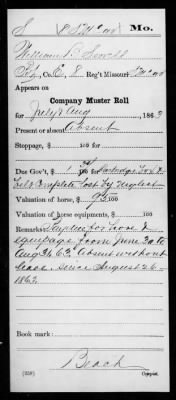 S 8 St M Mo.
William B. Sewell
Pvt, Co. E, 8 Reg't Missouri St M
Appears on
Company Muster Roll
for July & Aug, 1863
Present or absent Absent
Stoppage, $ 100 for
Due Gov't, $ 100 for Cartridge Box &
Belt Complete lost by Neglect
Valuation of horse, $ 95/100
Valuation of horse equipments, $ 100
Remarks: Stop for horse &
equipage from June 30 to
Aug 26, 63. Absent without
leave since August 26
1863
Book mark:
Beach
(358) Copyist.